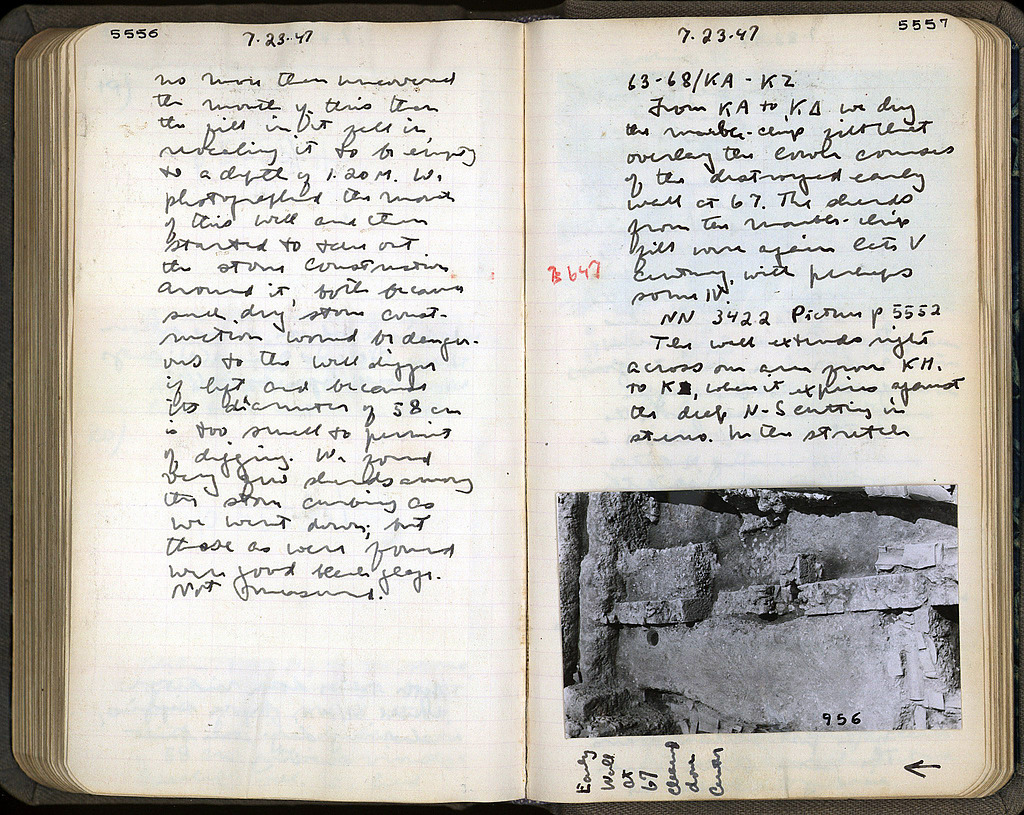 5556
7·23·47
no more than uncovered
the mouth of this than
the fill in it fell in,
revealing it to be empty
to a depth of 1.20 M. We
photographed the mouth
of this well and then
started to take out
the stone construction
around it, both because
such dry stone const-
ruction would be danger-
ous to the well digger
if left and because
its diameter of 58 cm
is too small to permit
of digging. We found
very few sherds among
the stone curbing as
we went down, but
those as were found
were good black glaze.
Not
5557
7·23·47
63-68/KA-KZ
From KA to KΔ we dug
the marble-chip fill that
overlay the lower courses
of the destroyed early
wall at 67. The sherds
from the marble-chip
fill were again late V
century, with perhaps
some IV.
B 647
NN 3422 Picture p 5552
The wall extends right
across our area from KH
to , where it expires against
the deep N-S cutting in
stereo. In the stretch
956
Early
Wall
at
67
cleared
down